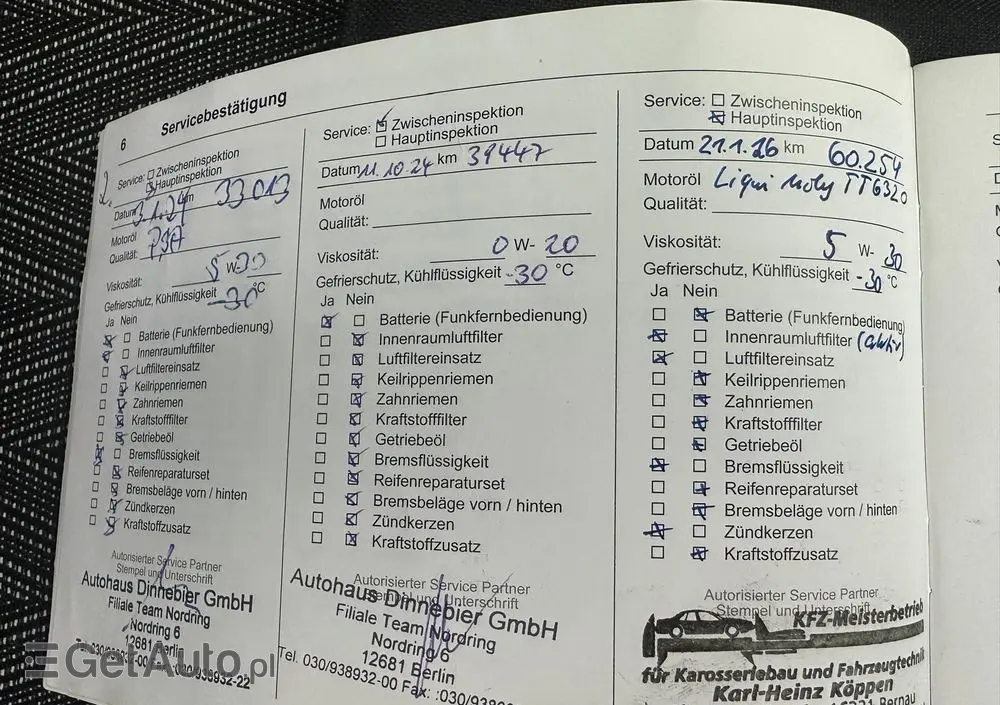 6
Servicebestätigung
Service: Zwischeninspektion
Hauptinspektion
Datum 3.1.24 km 33013
Motoröl
Qualität:
Viskosität: 5 W-30
Gefrierschutz, Kühlflüssigkeit -30 °C
Ja Nein
Batterie (Funkfernbedienung)
Innenraumluftfilter
Luftfiltereinsatz
Keilrippenriemen
Zahnriemen
Kraftstofffilter
Getriebeöl
Bremsflüssigkeit
Reifenreparaturset
Bremsbeläge vorn / hinten
Zündkerzen
Kraftstoffzusatz
Autorisierter Service Partner
Stempel und Unterschrift
Autohaus Dinnebier GmbH
Filiale Team Nordring
Nordring 6
12681 Berlin
Tel. 030/938932-00 Fax: :030/938932-22
Service: Zwischeninspektion
Hauptinspektion
Datum 11.10.24 km 39447
Motoröl
Qualität:
Viskosität: 0 W- 20
Gefrierschutz, Kühlflüssigkeit -30 °C
Ja Nein
Batterie (Funkfernbedienung)
Innenraumluftfilter
Luftfiltereinsatz
Keilrippenriemen
Zahnriemen
Kraftstofffilter
Getriebeöl
Bremsflüssigkeit
Reifenreparaturset
Bremsbeläge vorn / hinten
Zündkerzen
Kraftstoffzusatz
Autorisierter Service Partner
Stempel und Unterschrift
Autohaus Dinnebier GmbH
Filiale Team Nordring
Nordring 6
12681 Berlin
Tel. 030/938932-00 Fax: :030/9389
Service: Zwischeninspektion
Hauptinspektion
Datum 21.1.26 km 60.254
Motoröl Liqui Moly TT6320
Qualität:
Viskosität: 5 W- 30
Gefrierschutz, Kühlflüssigkeit -30 °C
Ja Nein
Batterie (Funkfernbedienung)
Innenraumluftfilter
Luftfiltereinsatz
Keilrippenriemen
Zahnriemen
Kraftstofffilter
Getriebeöl
Bremsflüssigkeit
Reifenreparaturset
Bremsbeläge vorn / hinten
Zündkerzen
Kraftstoffzusatz
Autorisierter Service Partner
Stempel und Unterschrift
KFZ-Meisterbetrieb
für Karosseriebau und Fahrzeugtechnik
Karl-Heinz Köppen
16321 Bernau
GetAuto.pl